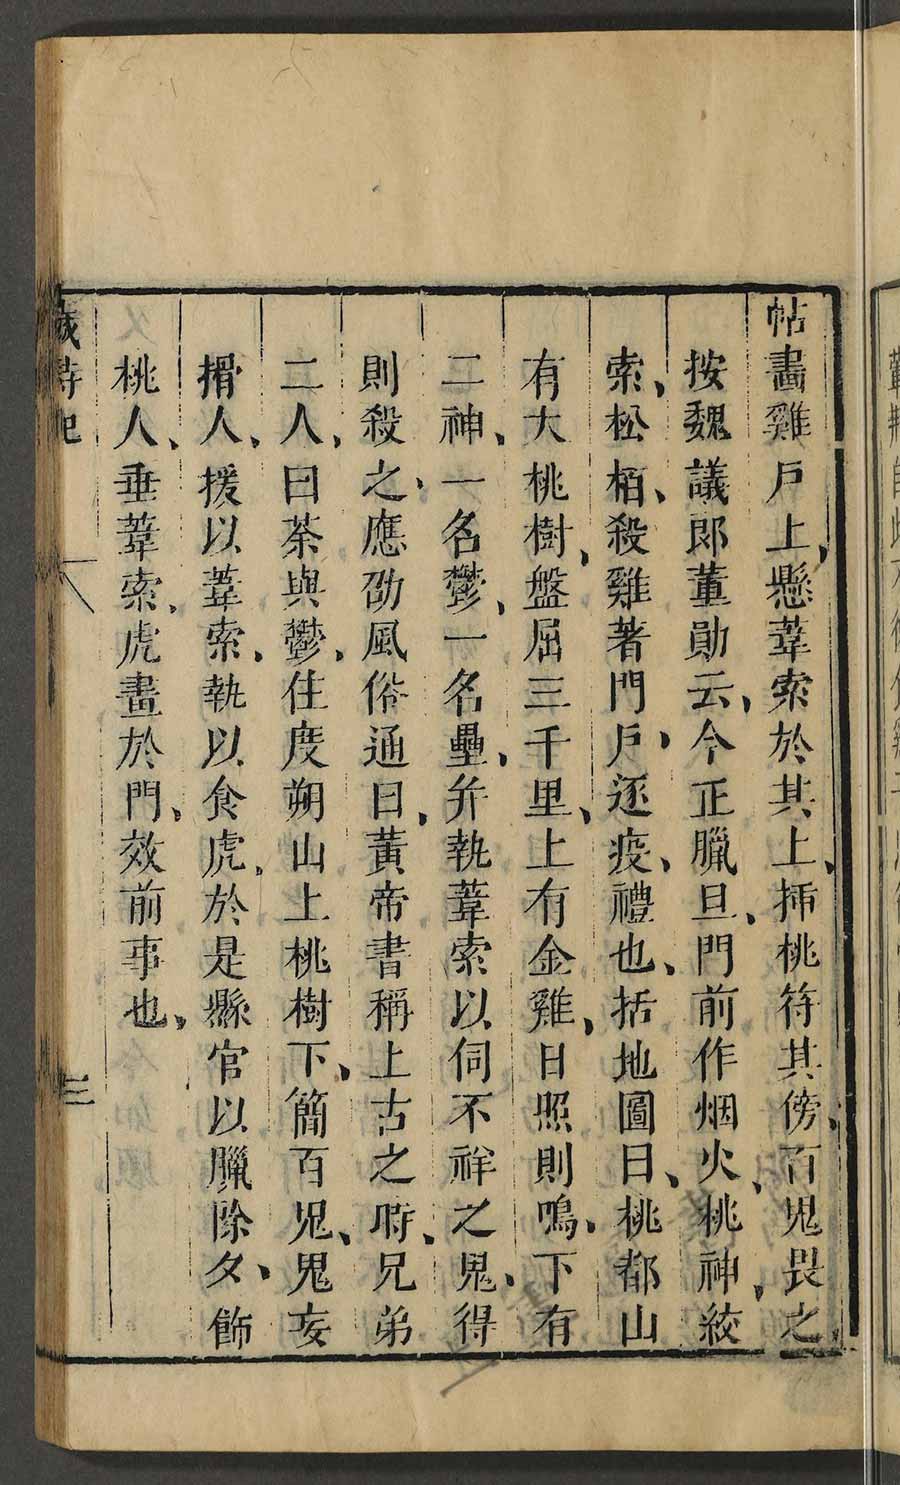 帖畫雞戶上、懸葦索於其上、揷桃符其傍、百鬼畏之、
按魏議郎董勛云、今正臘旦、門前作烟火、桃神、絞
索、松栢、殺雞著門戶、逐疫、禮也、括地圖曰、桃都山
有大桃樹、盤屈三千里、上有金雞、日照則鳴、下有
二神、一名鬱、一名壘、并執葦索以伺不祥之鬼、得
則殺之、應劭風俗通曰、黃帝書稱上古之時、兄弟
二人、曰荼與鬱、住度朔山上桃樹下、簡百鬼、鬼妄
搰人、援以葦索、執以食虎、於是縣官以臘除夕、飾
桃人、垂葦索、虎畫於門、效前事也、
歲時記
三